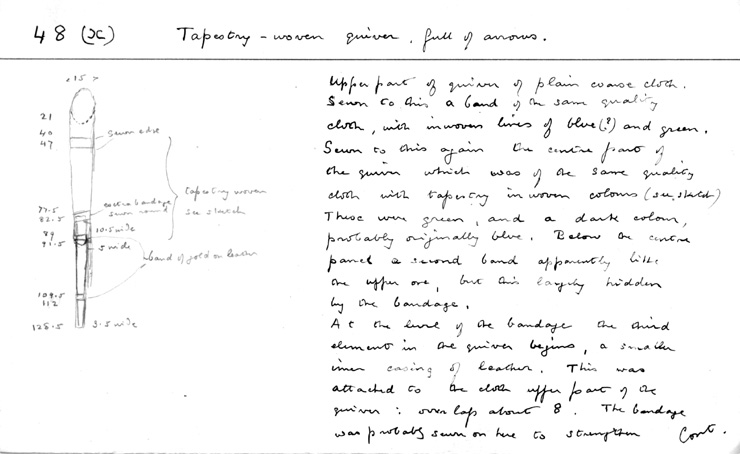 48 (x)
Tapestry-woven quiver, full of arrows.
<15>
21
40
47
77.5
82.5
89
91.5
109.5
112
128.5
sewn edge
extra bandage
sewn round
10.5 wide
5 wide
3.5 wide
tapestry woven
see sketch
band of gold on leather
Upper part of quiver of plain coarse cloth.
Sewn to this a band of the same quality
cloth, with inwoven lines of blue(?) and green.
Sewn to this again the centre part of
the quiver which was of the same quality
cloth with tapestry inwoven colours (see sketch)
These were green, and a dark colour,
probably originally blue. Below the centre
panel a second band apparently like
the upper one, but this largely hidden
by the bandage.
At the level of the bandage the third
element in the quiver begins, a smaller
inner casing of leather. This was
attached to the cloth upper part of the
quiver : overlap about 8. The bandage
was probably sewn on here to strengthen Cont.